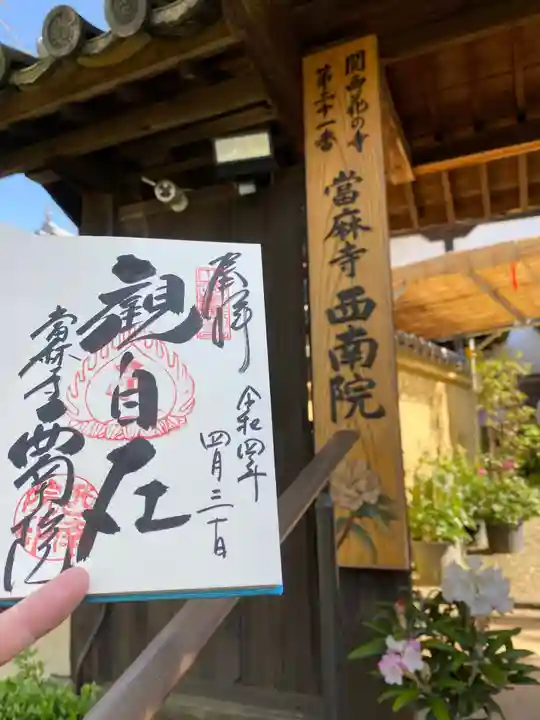 関西花の寺
第二十一番
當麻寺 西南院
奉拝
令和四年
四月二十一日
観自在
當麻寺
西南院